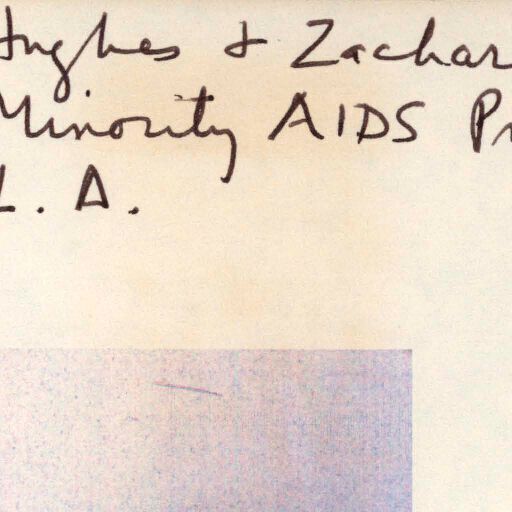 Hughes & Zachar
Minority AIDS Pr
L. A.